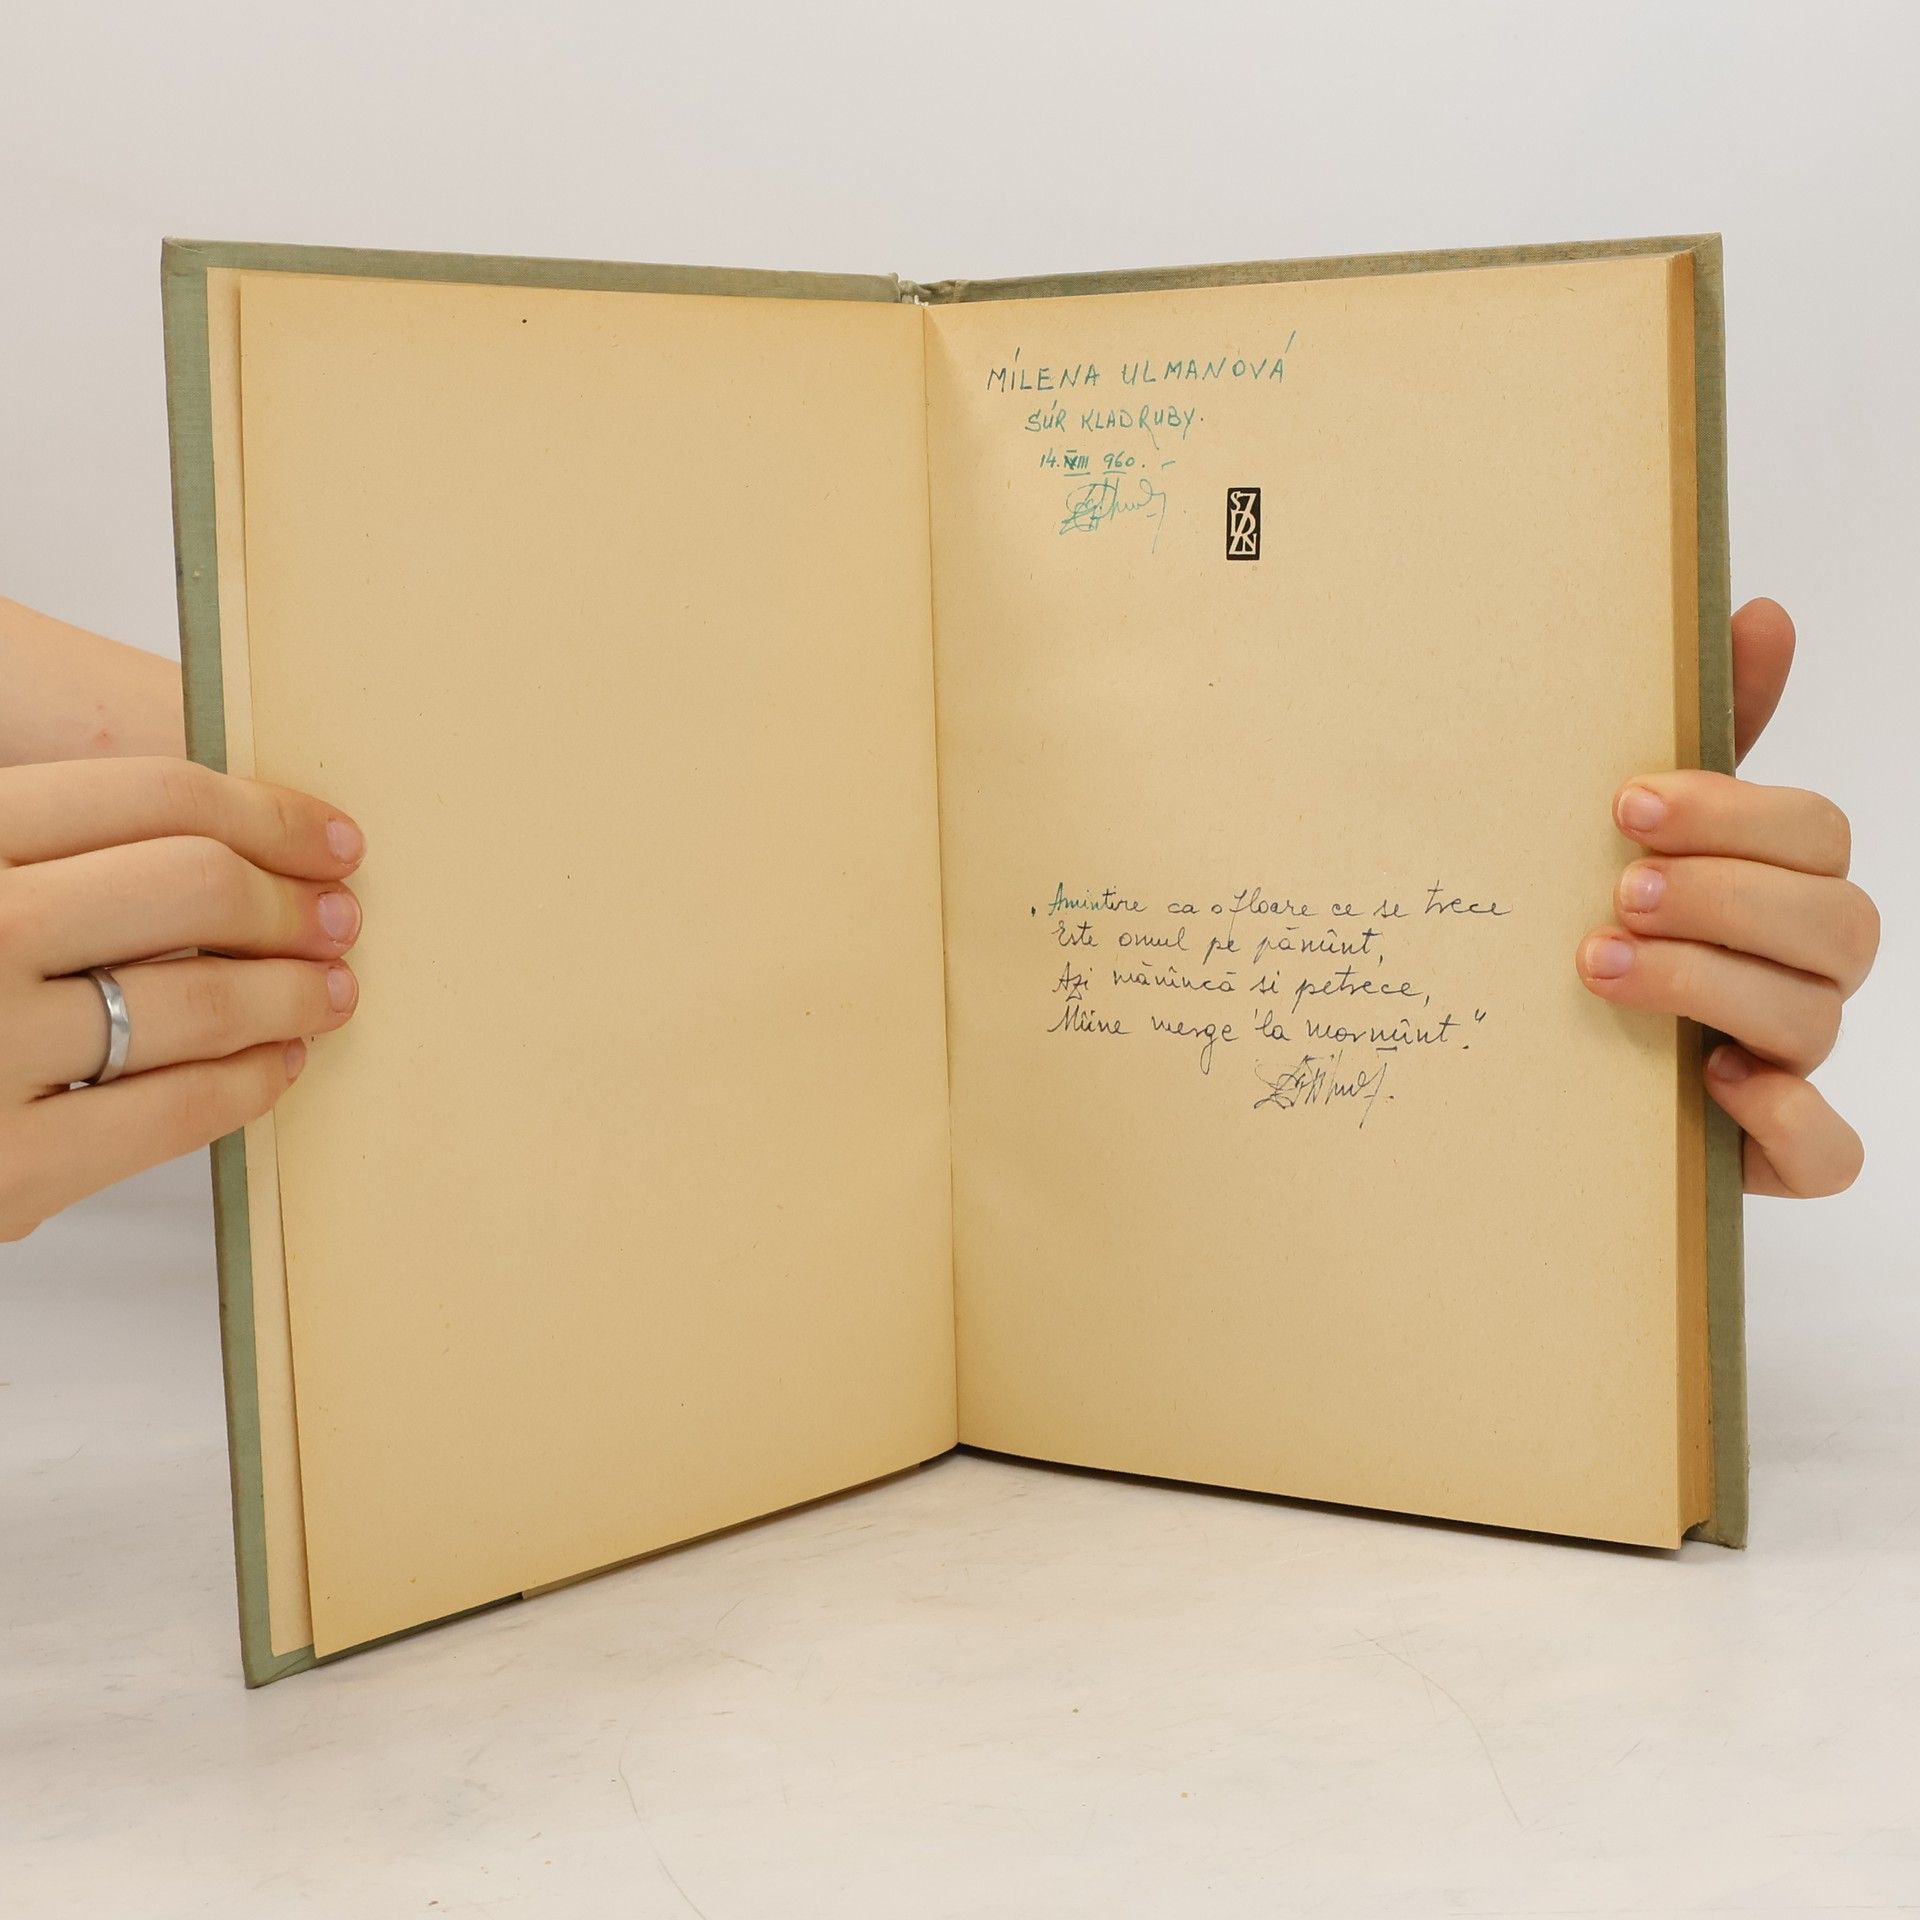 MÍLENA ULMANOVÁ
SÚR KLADRUBY.
14. VIII 960. –
SZ
D
ZN
„Amintire ca o floare ce se trece
Este omul pe pămînt,
Azi mănîncă si petrece,
Mîine merge la mormînt."